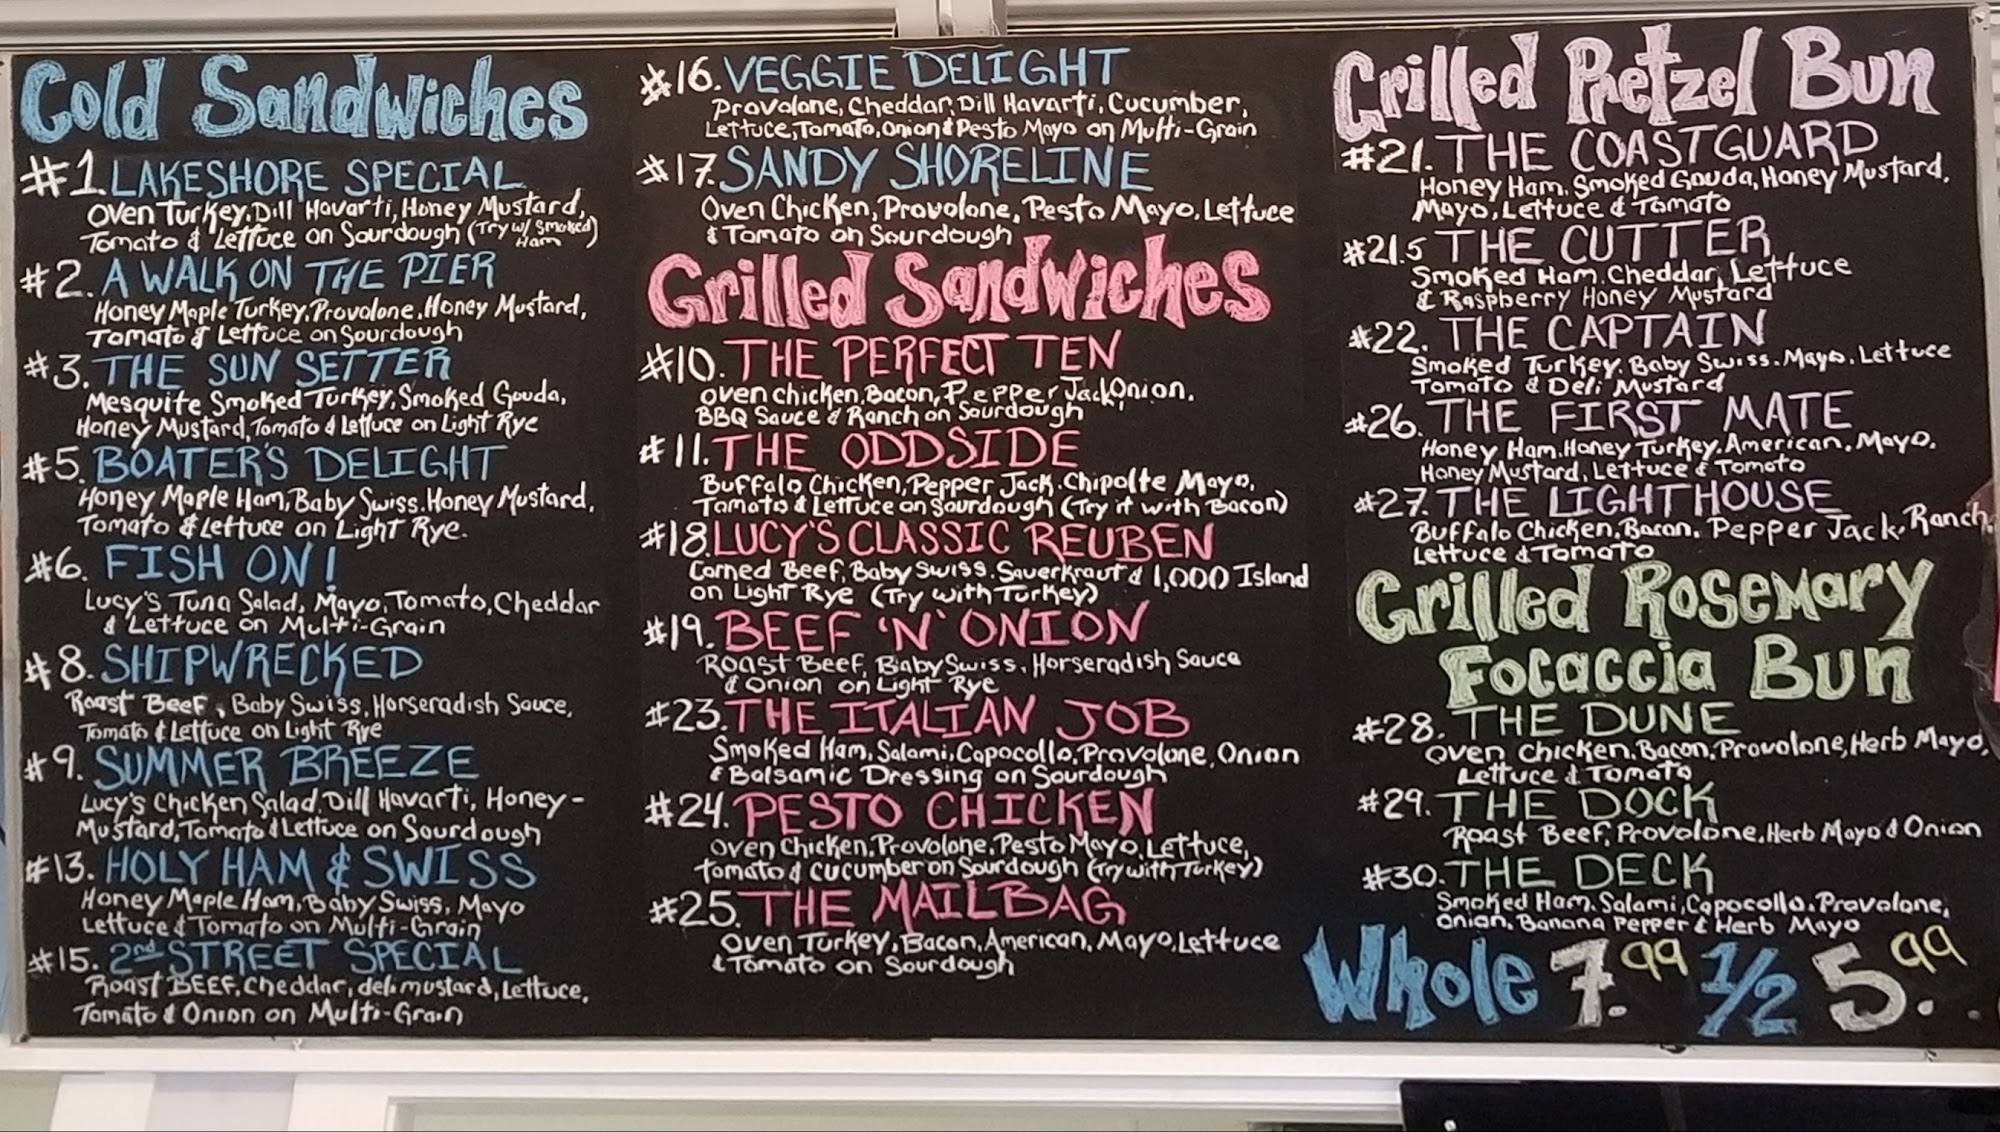 Cold Sandwiches
#1. LAKESHORE SPECIAL
Oven Turkey, Dill Havarti, Honey Mustard,
Tomato & Lettuce on Sourdough (Try w/ Smoked Ham)
#2. A WALK ON THE PIER
Honey Maple Turkey, Provolone, Honey Mustard,
Tomato & Lettuce on Sourdough
#3. THE SUN SETTER
Mesquite Smoked Turkey, Smoked Gouda,
Honey Mustard, Tomato & Lettuce on Light Rye
#5. BOATER'S DELIGHT
Honey Maple Ham, Baby Swiss, Honey Mustard,
Tomato & Lettuce on Light Rye.
#6. FISH ON!
Lucy's Tuna Salad, Mayo, Tomato, Cheddar
& Lettuce on Multi-Grain
#8. SHIPWRECKED
Roast Beef, Baby Swiss, Horseradish Sauce,
Tomato & Lettuce on Light Rye
#9. SUMMER BREEZE
Lucy's Chicken Salad, Dill Havarti, Honey-
Mustard, Tomato & Lettuce on Sourdough
#13. HOLY HAM & SWISS
Honey Maple Ham, Baby Swiss, Mayo
Lettuce & Tomato on Multi-Grain
#15. 2nd STREET SPECIAL
Roast BEEF, cheddar, deli mustard, Lettuce,
Tomato & Onion on Multi-Grain
#16. VEGGIE DELIGHT
Provolone, Cheddar, Dill Havarti, Cucumber,
Lettuce, Tomato, Onion & Pesto Mayo on Multi-Grain
#17. SANDY SHORELINE
Oven Chicken, Provolone, Pesto Mayo, Lettuce
& Tomato on Sourdough
Grilled Sandwiches
#10. THE PERFECT TEN
oven chicken, Bacon, Pepper Jack, Onion,
BBQ Sauce & Ranch on Sourdough
#11. THE ODDSIDE
Buffalo Chicken, Pepper Jack, Chipolte Mayo,
Tomato & Lettuce on Sourdough (Try it with Bacon)
#18. LUCY'S CLASSIC REUBEN
Corned Beef, Baby Swiss, Sauerkraut & 1,000 Island
on Light Rye (Try with Turkey)
#19. BEEF 'N' ONION
Roast Beef, Baby Swiss, Horseradish Sauce
& Onion on Light Rye
#23. THE ITALIAN JOB
Smoked Ham, Salami, Capocollo, Provolone, Onion
& Balsamic Dressing on Sourdough
#24. PESTO CHICKEN
Oven Chicken, Provolone, Pesto Mayo, Lettuce,
tomato & cucumber on Sourdough (try with Turkey)
#25. THE MAILBAG
Oven Turkey, Bacon, American, Mayo, Lettuce
& Tomato on Sourdough
Grilled Pretzel Bun
#21. THE COASTGUARD
Honey Ham, Smoked Gouda, Honey Mustard,
Mayo, Lettuce & Tomato
#21.5 THE CUTTER
Smoked Ham, Cheddar, Lettuce
& Raspberry Honey Mustard
#22. THE CAPTAIN
Smoked Turkey, Baby Swiss, Mayo, Lettuce
Tomato & Deli Mustard
#26. THE FIRST MATE
Honey Ham, Honey Turkey, American, Mayo,
Honey Mustard, Lettuce & Tomato
#27. THE LIGHTHOUSE
Buffalo Chicken, Bacon, Pepper Jack, Ranch,
Lettuce & Tomato
Grilled Rosemary
Focaccia Bun
#28. THE DUNE
Oven Chicken, Bacon, Provolone, Herb Mayo,
Lettuce & Tomato
#29. THE DOCK
Roast Beef, Provolone, Herb Mayo & Onion
#30. THE DECK
Smoked Ham, Salami, Capocollo, Provolone,
Onion, Banana Pepper & Herb Mayo
Whole 7.99 1/2 5.99